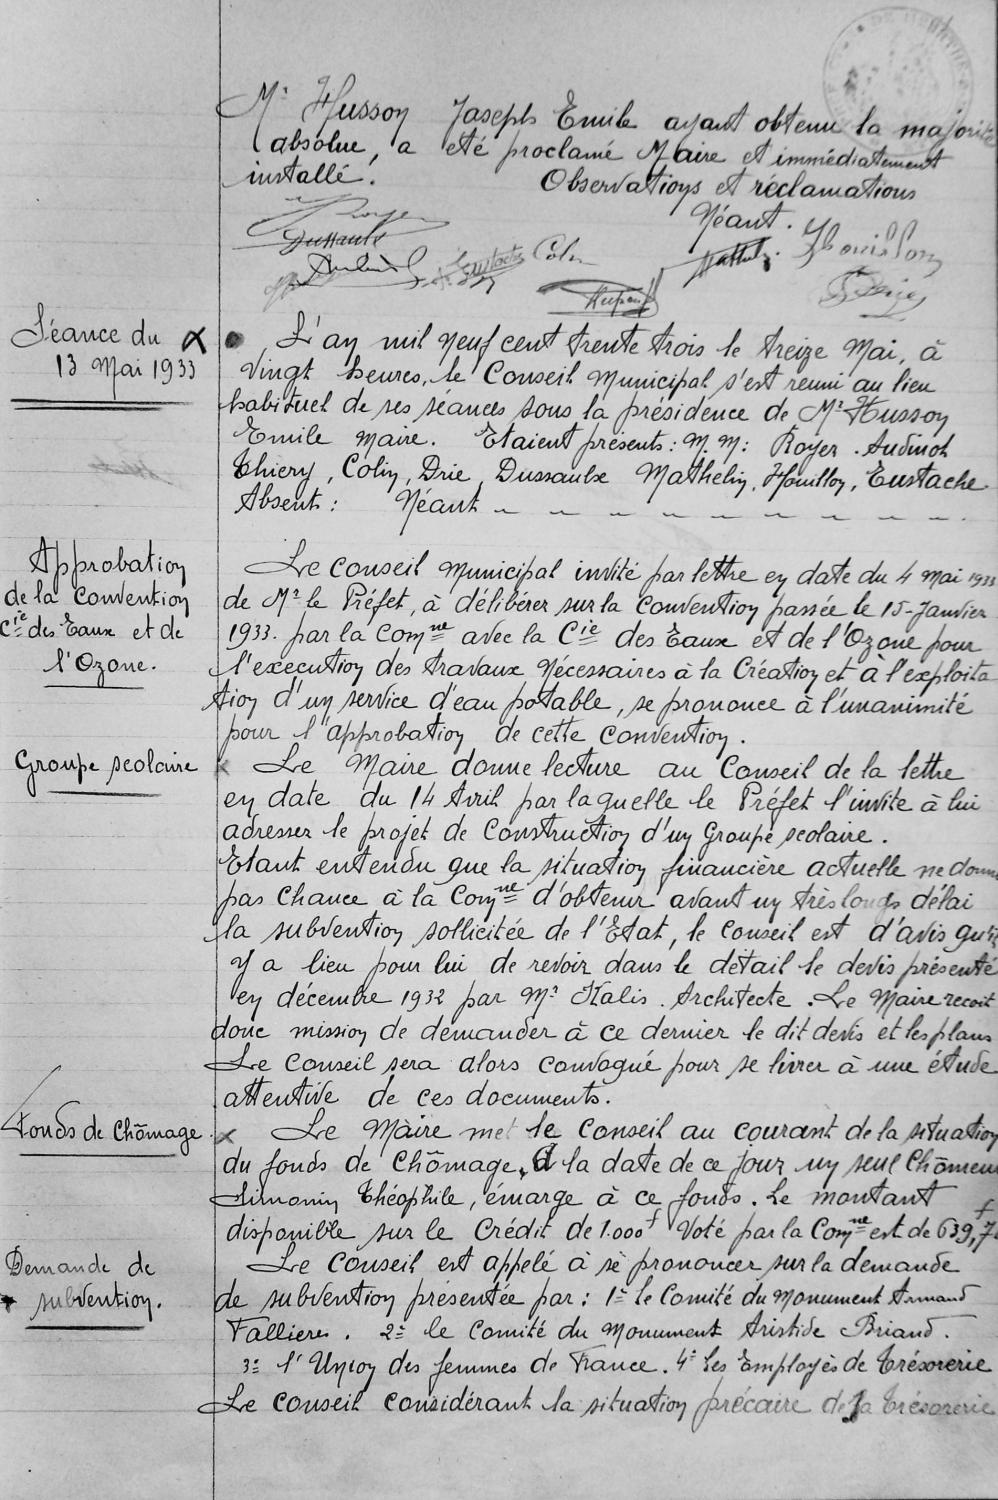 Mr Husson Joseph Emile ayant obtenu la majorité
absolue, a été proclamé Maire et immédiatement
installé. Observations et réclamations
Néant.
Royer
Dussaulx
Audinot Eustache Colin Mathelin Houillon
Séance du
13 Mai 1933
L'an mil neuf cent trente trois le treize Mai, à
vingt heures, le Conseil Municipal s'est reuni au lieu
habituel de ses séances sous la présidence de Mr Husson
Emile Maire. Etaient présents: M.M: Royer. Audinot
Thiery, Colin, Drie, Dussaulx Mathelin, Houillon, Eustache
Absent: Néant
Approbation
de la Convention
Cie des Eaux et de
l'Ozone.
Le Conseil Municipal invité par lettre en date du 4 Mai 1933
de Mr le Préfet, à délibérer sur la Convention passée le 15-Janvier
1933. par la Comne avec la Cie des Eaux et de l'Ozone pour
l'execution des travaux nécessaires à la Création et à l'exploita
tion d'un service d'eau potable, se prononce à l'unanimité
pour l'approbation de cette Convention.
Groupe scolaire
x Le Maire donne lecture au Conseil de la lettre
en date du 14 Avril par laquelle le Préfet l'invite à lui
adresser le projet de Construction d'un Groupe scolaire.
Etant entendu que la situation financière actuelle ne donne
pas Chance à la Comne d'obtenir avant un très longs délai
la subvention sollicitée de l'Etat, le Conseil est d'avis qu'il
y a lieu pour lui de revoir dans le détail le devis présenté
en décembre 1932 par Mr Kalis. Architecte. Le Maire recoit
donc mission de demander à ce dernier le dit devis et les plans
Le Conseil sera alors convoqué pour se livrer à une étude
attentive de ces documents.
Fonds de Chômage.
x Le Maire met le Conseil au courant de la situation
du fonds de Chômage, A la date de ce jour un seul Chômeur
Simonin Théophile, émarge à ce fonds. Le montant
disponible sur le Crédit de 1.000f Voté par la Comne est de 639,7
Demande de
subvention.
Le Conseil est appelé à se prononcer sur la demande
de subvention présentée par: 1= le Comité du Monument Armand
Fallières. 2= le Comité du Monument Aristide Briand.
3= l'Union des femmes de France. 4= Les Employés de Trésorerie
Le Conseil considérant la situation précaire de la Trésorerie